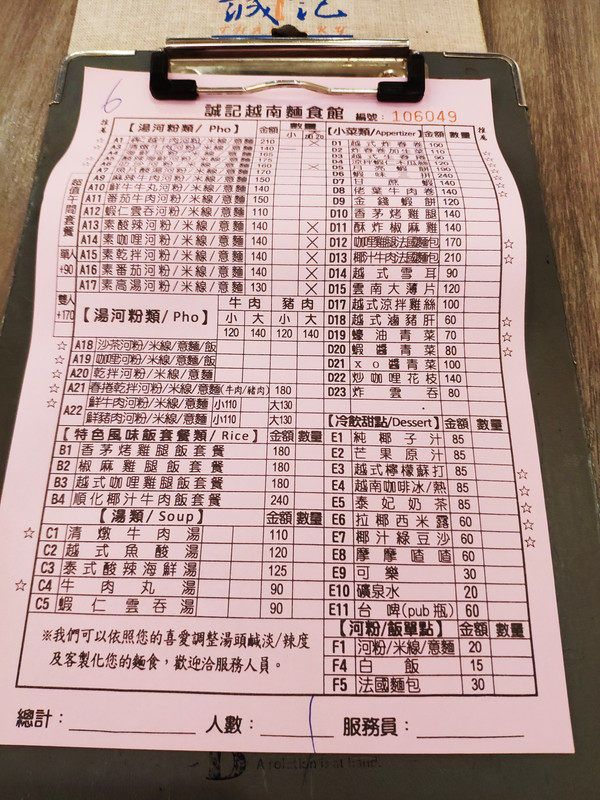 誠記
6
誠記越南麵食館 編號: 106049
推薦
【湯河粉類/ Pho】 金額 數量
小
A1 210
A9 麻辣牛肉河粉/米線/意麵 150
A10 鮮牛丸河粉/米線/意麵 140
A11 番茄牛肉河粉/米線/意麵 150
A12 蝦仁雲吞河粉/米線/意麵 110
A13 素酸辣河粉/米線/意麵 140
A14 素咖哩河粉/米線/意麵 140
A15 素乾拌河粉/米線/意麵 140
A16 素番茄河粉/米線/意麵 140
A17 素高湯河粉/米線/意麵 130
超值午間套餐
單人 +90
雙人 +170
【湯河粉類/ Pho】 牛肉 豬肉
小 大 小 大
120 140 120 140
A18 沙茶河粉/米線/意麵/飯
A19 咖哩河粉/米線/意麵/飯
A20 乾拌河粉/米線/意麵
A21 春捲乾拌河粉/米線/意麵(牛肉/豬肉) 180
A22 鮮牛肉河粉/米線/意麵 小110 大130
鮮豬肉河粉/米線/意麵 小110 大130
【特色風味飯套餐類/ Rice】 金額 數量
B1 香茅烤雞腿飯套餐 180
B2 椒麻雞腿飯套餐 180
B3 越式咖哩雞腿飯套餐 180
B4 順化椰汁牛肉飯套餐 240
【湯類/ Soup】 金額 數量
C1 清燉牛肉湯 110
C2 越式魚酸湯 120
C3 泰式酸辣海鮮湯 125
C4 牛肉丸湯 90
C5 蝦仁雲吞湯 90
※我們可以依照您的喜愛調整湯頭鹹淡/辣度
及客製化您的麵食，歡迎洽服務人員。
推薦
【小菜類/Appertizer】 金額 數量
D1 越式炸春卷 100
D7 甘蔗蝦 140
D8 佬葉牛肉卷 140
D9 金錢蝦餅 120
D10 香茅烤雞腿 140
D11 酥炸椒麻雞 140
D12 咖哩雞腿法國麵包 170
D13 椰汁牛肉法國麵包 210
D14 越式雪耳 90
D15 雲南大薄片 120
D17 越式涼拌雞絲 100
D18 越式滷豬肝 60
D19 蠔油青菜 70
D20 蝦醬青菜 80
D21 xo醬青菜 100
D22 炒咖哩花枝 140
D23 炸雲吞 80
【冷飲甜點/Dessert】 金額 數量
E1 純椰子汁 85
E2 芒果原汁 85
E3 越式檸檬蘇打 85
E4 越南咖啡冰/熱 85
E5 泰妃奶茶 85
E6 拉椰西米露 60
E7 椰汁綠豆沙 60
E8 摩摩喳喳 60
E9 可樂 30
E10 礦泉水 20
E11 台啤(pub瓶) 60
【河粉/飯單點】 金額 數量
F1 河粉/米線/意麵 20
F4 白飯 15
F5 法國麵包 30
總計： 人數： 服務員：